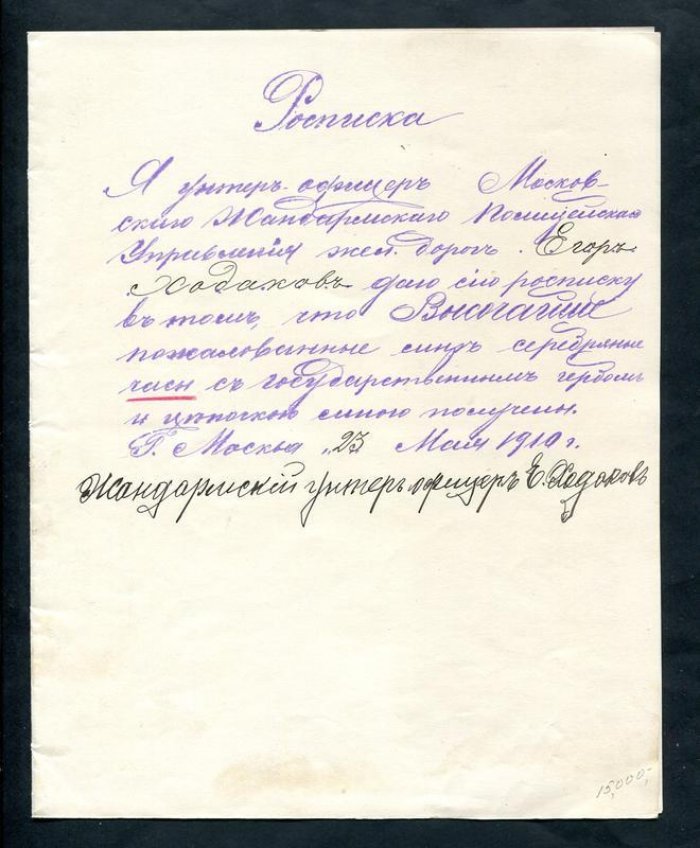 Росписка
Я унтеръ-офицеръ Москов-
скаго Жандармскаго Полицейскаго
Управленія жел. дорогъ. Егоръ
Ходаковъ даю сію росписку
въ томъ, что Высочайше
пожалованные мнѣ серебряные
часы съ государственнымъ гербомъ
и цѣпочкою мною получены.
Г. Москва „23 Мая 1910 г.
Жандармскій унтеръ офицеръ Е. Ходаковъ
15,000,-